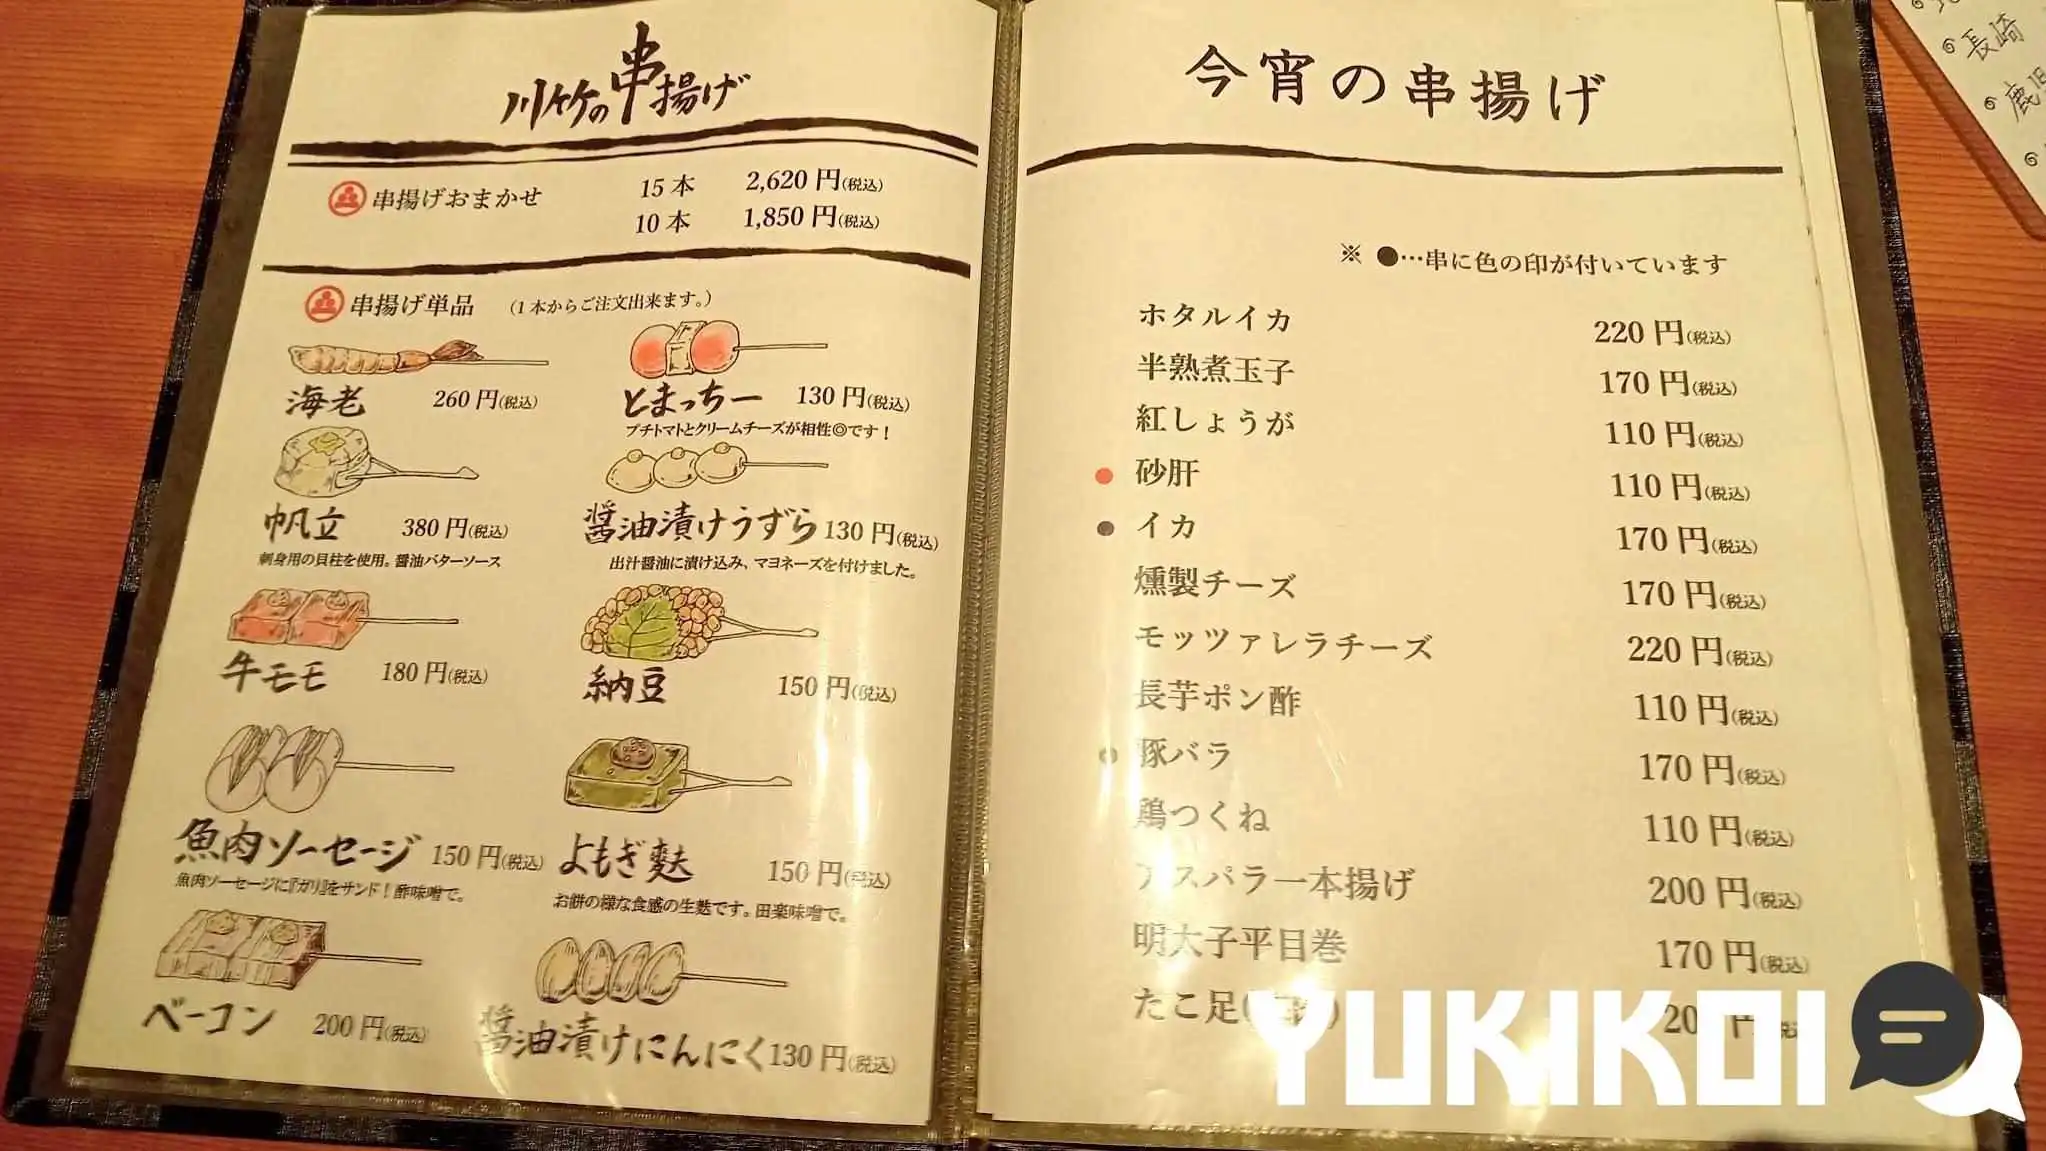 川竹の串揚げ
串揚げおまかせ 15本 2,620円(税込)
10本 1,850円(税込)
串揚げ単品 (1本からご注文出来ます。)
海老 260円(税込)
とまっちー 130円(税込)
プチトマトとクリームチーズが相性◎です！
帆立 380円(税込)
刺身用の貝柱を使用。醤油バターソース
醤油漬けうずら 130円(税込)
出汁醤油に漬け込み、マヨネーズを付けました。
牛モモ 180円(税込)
納豆 150円(税込)
魚肉ソーセージ 150円(税込)
魚肉ソーセージに『ガリ』をサンド！酢味噌で。
よもぎ麩 150円(税込)
お餅の様な食感の生麩です。田楽味噌で。
ベーコン 200円(税込)
醤油漬けにんにく 130円(税込)
今宵の串揚げ
※ ●…串に色の印が付いています
ホタルイカ 220円(税込)
半熟煮玉子 170円(税込)
紅しょうが 110円(税込)
● 砂肝 110円(税込)
● イカ 170円(税込)
燻製チーズ 170円(税込)
モッツァレラチーズ 220円(税込)
長芋ポン酢 110円(税込)
● 豚バラ 170円(税込)
鶏つくね 110円(税込)
アスパラ一本揚げ 200円(税込)
明太子平目巻 170円(税込)
たこ足
長崎
鹿
YUKIKOI